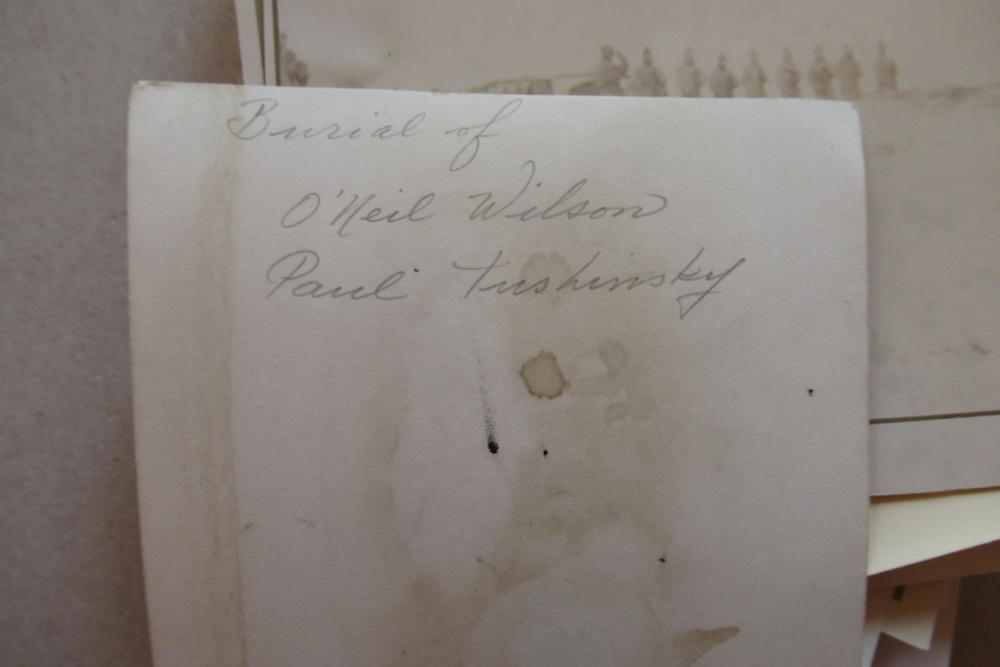 Burial of
O'Neil Wilson
Paul Tushinsky